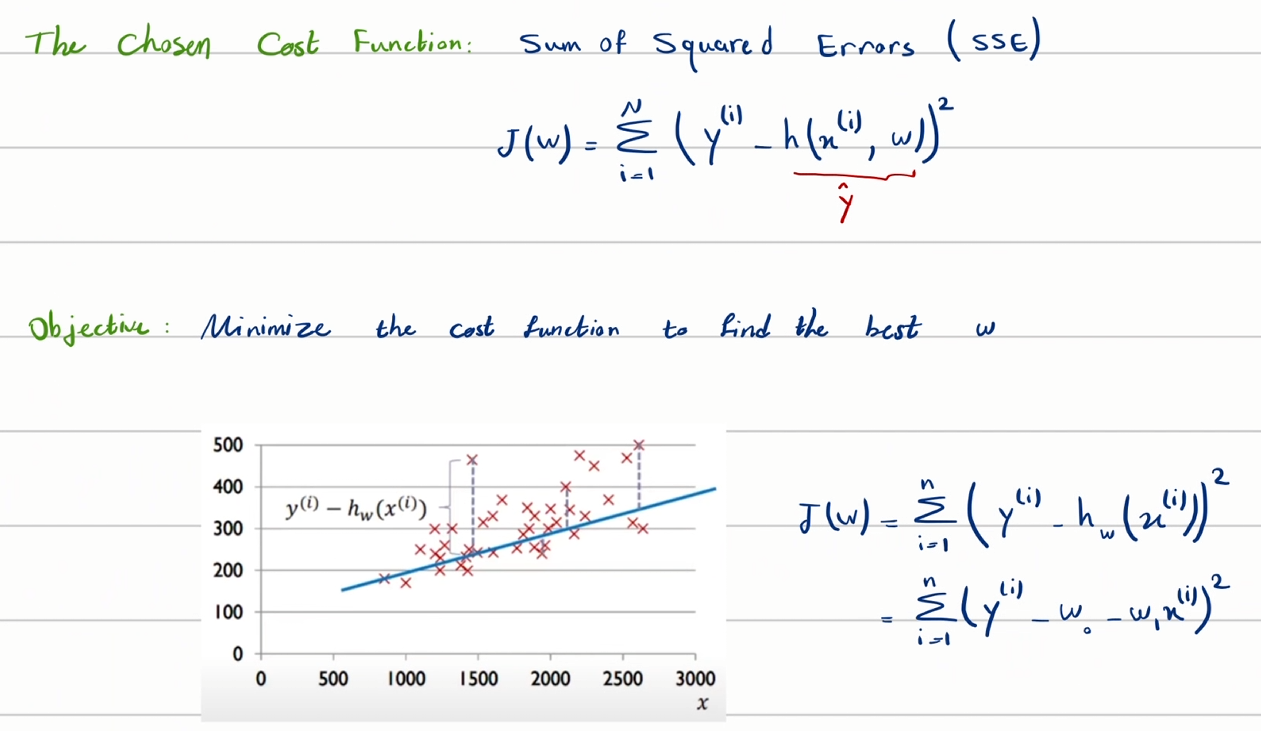 The Chosen Cost Function: Sum of Squared Errors (SSE)
J(w) = Σ_{i=1}^{N} (y^{(i)} - h(x^{(i)}, w))^2
ŷ
Objective: Minimize the cost function to find the best w
500
400
300
200
100
0
y^{(i)} − h_w(x^{(i)})
0 500 1000 1500 2000 2500 3000
x
J(w) = Σ_{i=1}^{n} (y^{(i)} - h_w(x^{(i)}))^2
= Σ_{i=1}^{n} (y^{(i)} - w_0 - w_1 x^{(i)})^2